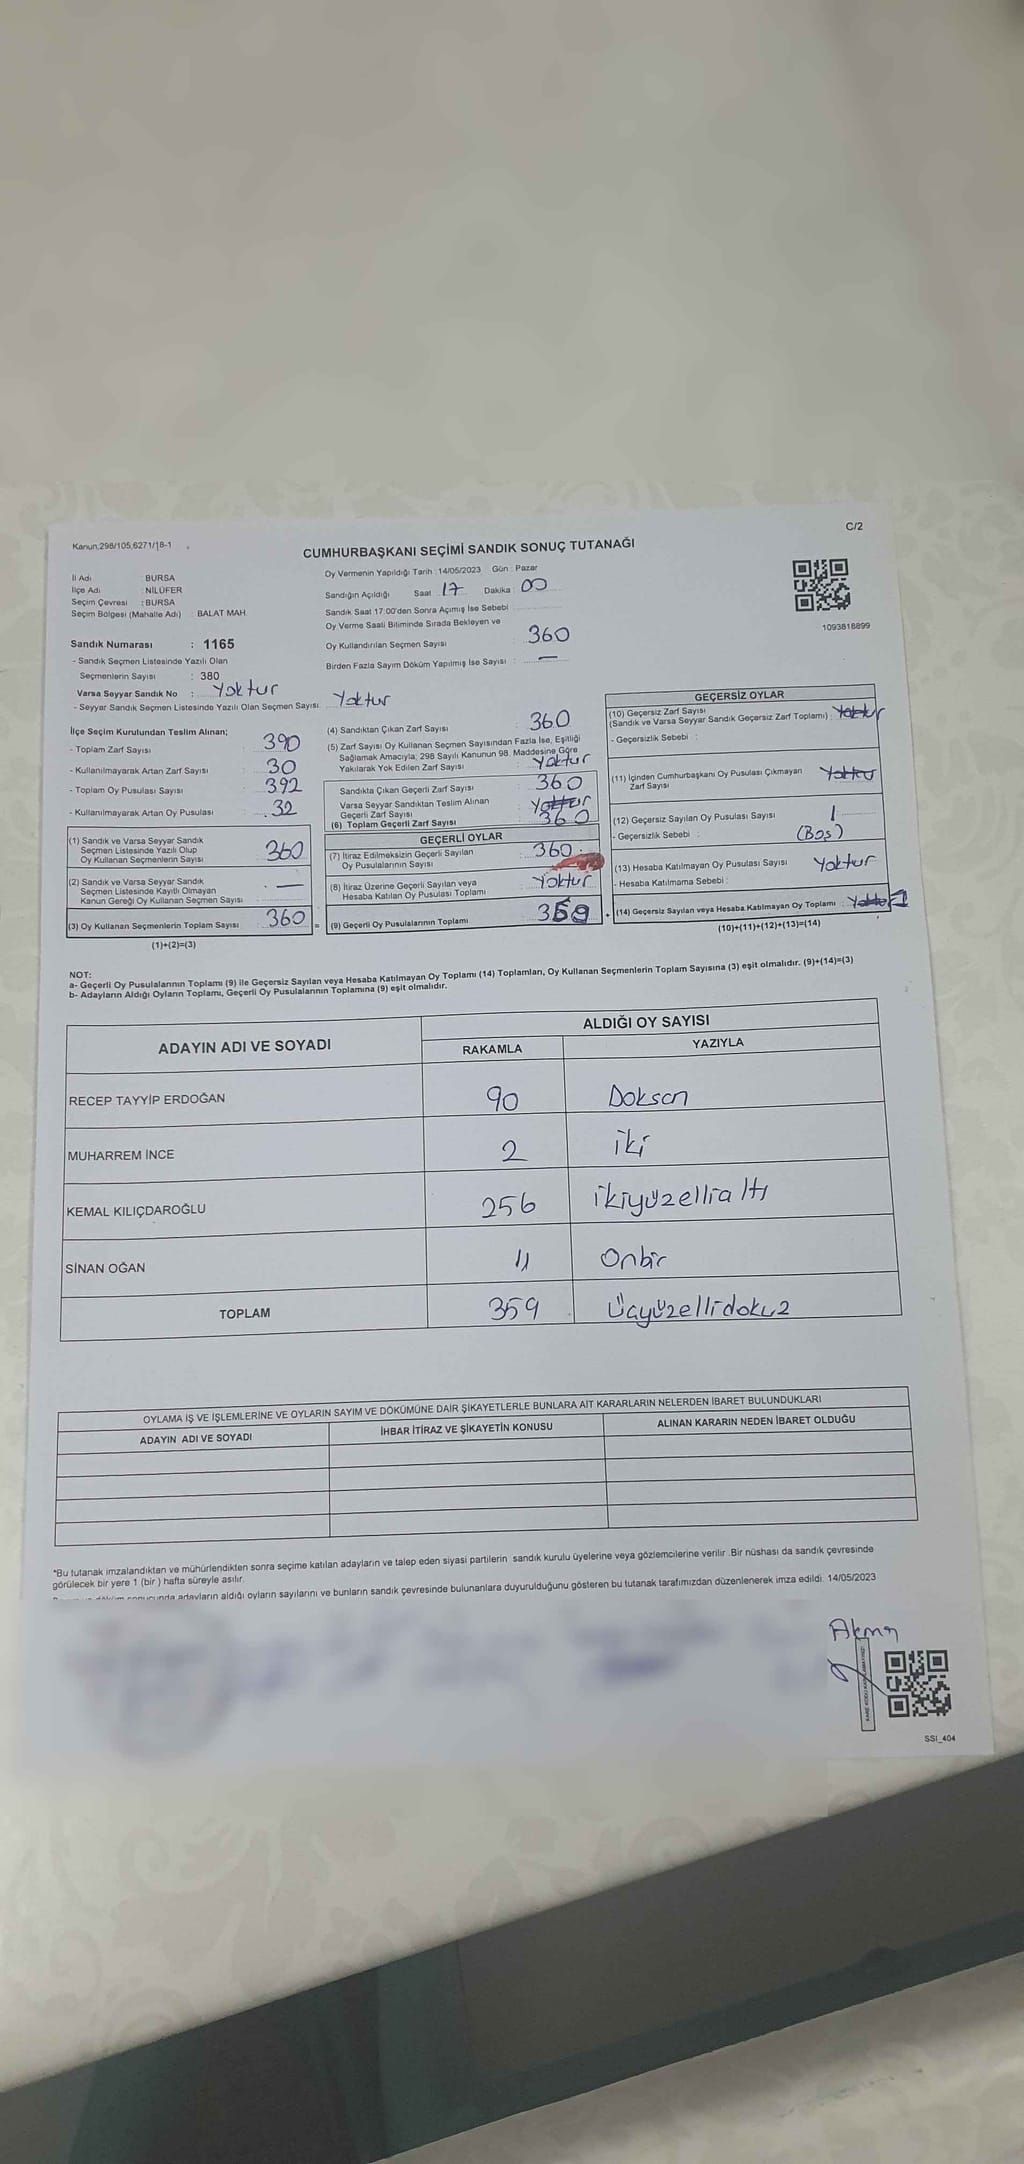 C/2
Kanun,298/105,6271/18-1
CUMHURBAŞKANI SEÇİMİ SANDIK SONUÇ TUTANAĞI
İl Adı : BURSA
İlçe Adı : NİLÜFER
Seçim Çevresi : BURSA
Seçim Bölgesi (Mahalle Adı) : BALAT MAH.
Sandık Numarası : 1165
- Sandık Seçmen Listesinde Yazılı Olan
Seçmenlerin Sayısı : 380
Varsa Seyyar Sandık No : Yoktur
- Seyyar Sandık Seçmen Listesinde Yazılı Olan Seçmen Sayısı: Yoktur
Oy Vermenin Yapıldığı Tarih : 14/05/2023 Gün : Pazar
Sandığın Açıldığı Saat : 17 Dakika : 00
Sandık Saat 17:00'den Sonra Açımış İse Sebebi :
Oy Verme Saati Bitiminde Sırada Bekleyen ve
Oy Kullandırılan Seçmen Sayısı : 360
Birden Fazla Sayım Döküm Yapılmış İse Sayısı : —
1093818899
İlçe Seçim Kurulundan Teslim Alınan;
- Toplam Zarf Sayısı : 390
- Kullanılmayarak Artan Zarf Sayısı : 30
- Toplam Oy Pusulası Sayısı : 392
- Kullanılmayarak Artan Oy Pusulası : 32
(1) Sandık ve Varsa Seyyar Sandık
Seçmen Listesinde Yazılı Olup
Oy Kullanan Seçmenlerin Sayısı : 360
(2) Sandık ve Varsa Seyyar Sandık
Seçmen Listesinde Kayıtlı Olmayan
Kanun Gereği Oy Kullanan Seçmen Sayısı : —
(3) Oy Kullanan Seçmenlerin Toplam Sayısı : 360
(1)+(2)=(3)
(4) Sandıktan Çıkan Zarf Sayısı : 360
(5) Zarf Sayısı Oy Kullanan Seçmen Sayısından Fazla İse, Eşitliği
Sağlamak Amacıyla; 298 Sayılı Kanunun 98. Maddesine Göre
Yakılarak Yok Edilen Zarf Sayısı : Yoktur
Sandıkta Çıkan Geçerli Zarf Sayısı : 360
Varsa Seyyar Sandıktan Teslim Alınan
Geçerli Zarf Sayısı : Yoktur
(6) Toplam Geçerli Zarf Sayısı : 360
GEÇERLİ OYLAR
(7) İtiraz Edilmeksizin Geçerli Sayılan
Oy Pusulalarının Sayısı : 360
(8) İtiraz Üzerine Geçerli Sayılan veya
Hesaba Katılan Oy Pusulası Toplamı : Yoktur
(9) Geçerli Oy Pusulalarının Toplamı : 359
GEÇERSİZ OYLAR
(10) Geçersiz Zarf Sayısı
(Sandık ve Varsa Seyyar Sandık Geçersiz Zarf Toplamı) : Yoktur
- Geçersizlik Sebebi :
(11) İçinden Cumhurbaşkanı Oy Pusulası Çıkmayan
Zarf Sayısı : Yoktur
(12) Geçersiz Sayılan Oy Pusulası Sayısı : 1
- Geçersizlik Sebebi : (Boş)
(13) Hesaba Katılmayan Oy Pusulası Sayısı : Yoktur
- Hesaba Katılmama Sebebi :
(14) Geçersiz Sayılan veya Hesaba Katılmayan Oy Toplamı : Yoktur 1
(10)+(11)+(12)+(13)=(14)
NOT:
a- Geçerli Oy Pusulalarının Toplamı (9) ile Geçersiz Sayılan veya Hesaba Katılmayan Oy Toplamı (14) Toplamları, Oy Kullanan Seçmenlerin Toplam Sayısına (3) eşit olmalıdır. (9)+(14)=(3)
b- Adayların Aldığı Oyların Toplamı, Geçerli Oy Pusulalarının Toplamına (9) eşit olmalıdır.
ADAYIN ADI VE SOYADI
ALDIĞI OY SAYISI
RAKAMLA YAZIYLA
RECEP TAYYİP ERDOĞAN 90 Doksan
MUHARREM İNCE 2 iki
KEMAL KILIÇDAROĞLU 256 ikiyüzellialtı
SİNAN OĞAN 11 Onbir
TOPLAM 359 Üçyüzellidokuz
OYLAMA İŞ VE İŞLEMLERİNE VE OYLARIN SAYIM VE DÖKÜMÜNE DAİR ŞİKAYETLERLE BUNLARA AİT KARARLARIN NELERDEN İBARET BULUNDUKLARI
ADAYIN ADI VE SOYADI İHBAR İTİRAZ VE ŞİKAYETİN KONUSU ALINAN KARARIN NEDEN İBARET OLDUĞU
*Bu tutanak imzalandıktan ve mühürlendikten sonra seçime katılan adayların ve talep eden siyasi partilerin sandık kurulu üyelerine veya gözlemcilerine verilir .Bir nüshası da sandık çevresinde
görülecek bir yere 1 (bir ) hafta süreyle asılır.
sonucunda adayların aldığı oyların sayılarını ve bunların sandık çevresinde bulunanlara duyurulduğunu gösteren bu tutanak tarafımızdan düzenlenerek imza edildi. 14/05/2023
SSI_404